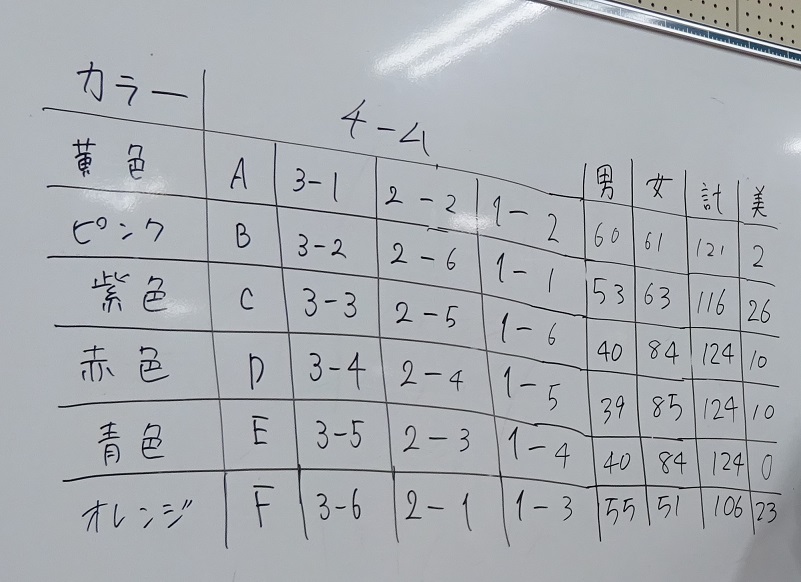 カラー
4-4
男 女 計 美
黄色 A 3-1 2-2 1-2 60 61 121 2
ピンク B 3-2 2-6 1-1 53 63 116 26
紫色 C 3-3 2-5 1-6 40 84 124 10
赤色 D 3-4 2-4 1-5 39 85 124 10
青色 E 3-5 2-3 1-4 40 84 124 0
オレンジ F 3-6 2-1 1-3 55 51 106 23